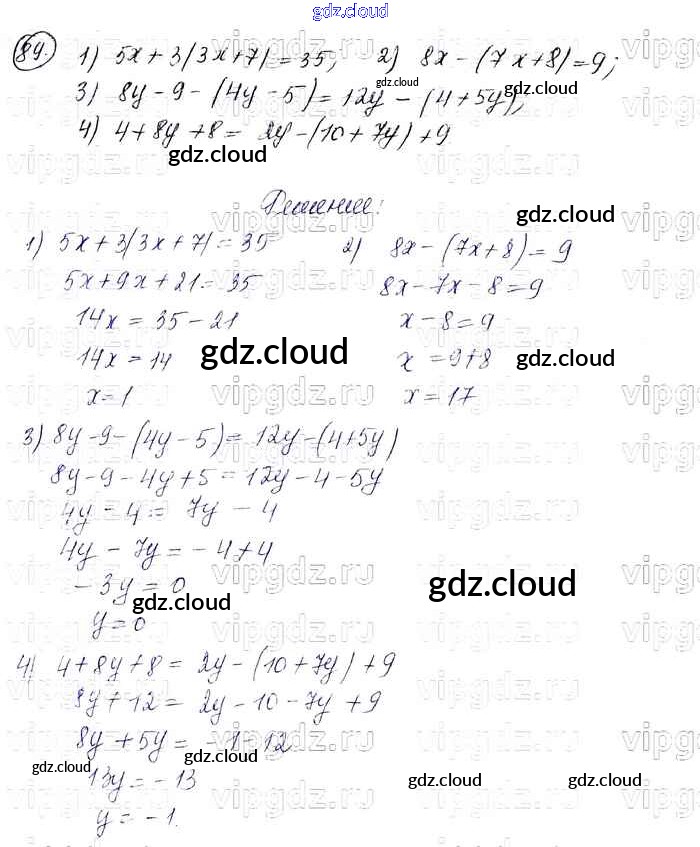 gdz.cloud
89. 1) 5x + 3(3x+7) = 35; 2) 8x - (7x+8) = 9;
gdz.cloud
3) 8y - 9 - (4y - 5) = 12y - (4 + 5y);
4) 4 + 8y + 8 = 2y - (10 + 7y) + 9
gdz.cloud
Решение:
gdz.cloud
1) 5x + 3(3x + 7) = 35 2) 8x - (7x + 8) = 9
5x + 9x + 21 = 35 8x - 7x - 8 = 9
14x = 35 - 21 x - 8 = 9
14x = 14 gdz.cloud x = 9 + 8 gdz.cloud
x = 1 x = 17
3) 8y - 9 - (4y - 5) = 12y - (4 + 5y)
8y - 9 - 4y + 5 = 12y - 4 - 5y
4y - 4 = 7y - 4
4y - 7y = - 4 + 4
- 3y = 0 gdz.cloud
gdz.cloud
y = 0
4) 4 + 8y + 8 = 2y - (10 + 7y) + 9
8y + 12 = 2y - 10 - 7y + 9
8y + 5y = - 1 - 12
gdz.cloud
gdz.cloud 13y = - 13 gdz.cloud gdz.cloud
y = - 1.
vipgdz.ru